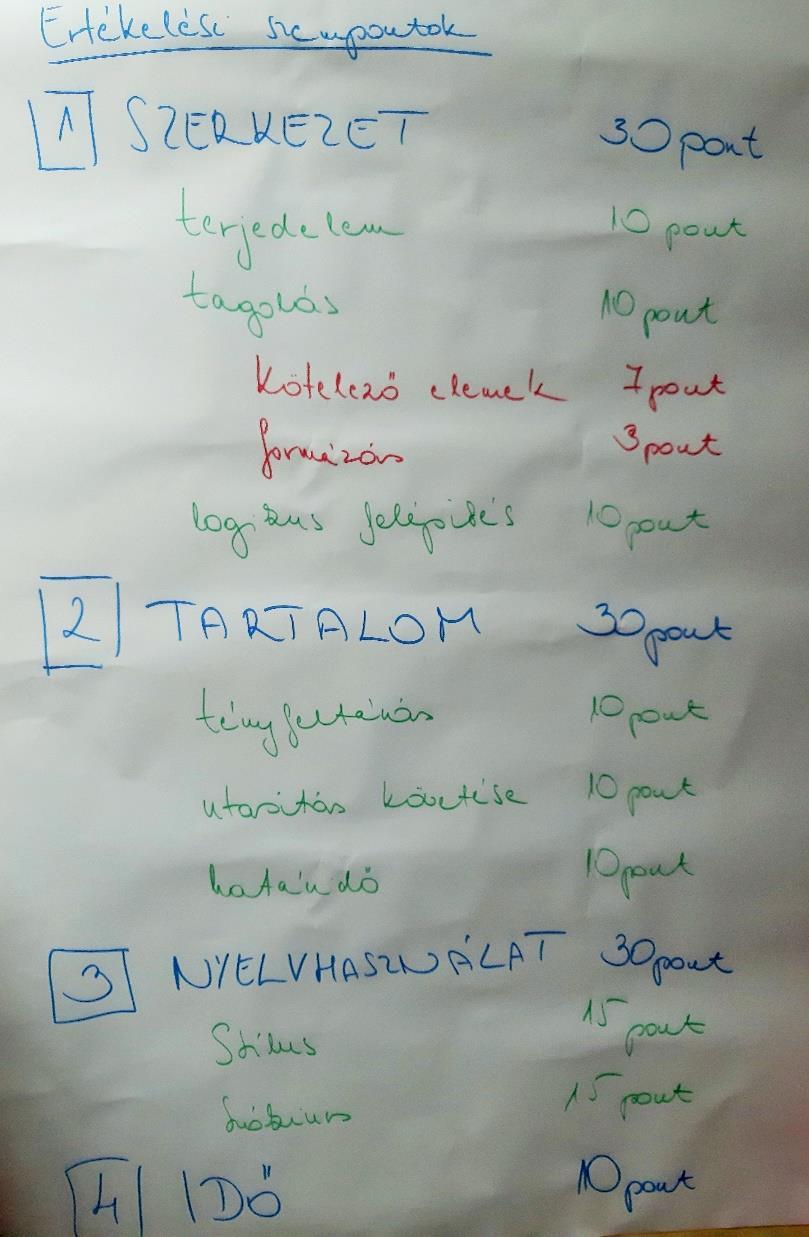 Értékelési szempontok
1 SZERKEZET 30 pont
terjedelem 10 pont
tagolás 10 pont
kötelező elemek 7 pont
formázás 3 pont
logikus felépítés 10 pont
2 TARTALOM 30 pont
tényfeltárás 10 pont
utasítás követése 10 pont
határidő 10 pont
3 NYELVHASZNÁLAT 30 pont
Stílus 15 pont
15 pont
4 IDŐ 10 pont